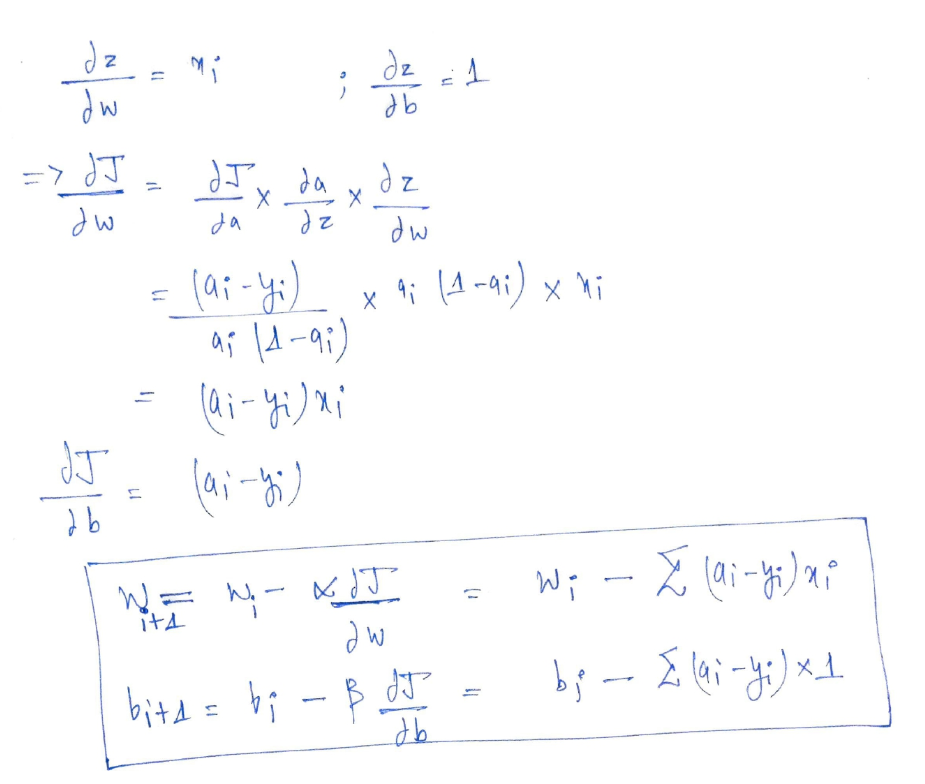 ∂z/∂w = xi ; ∂z/∂b = 1
=> ∂J/∂w = ∂J/∂a × ∂a/∂z × ∂z/∂w
= (ai - yi) / ai (1 - ai) × ai (1 - ai) × xi
= (ai - yi) xi
∂J/∂b = (ai - yi)
Wi+1 = Wi - α ∂J/∂w = Wi - Σ (ai - yi) xi
bi+1 = bi - β ∂J/∂b = bi - Σ (ai - yi) × 1